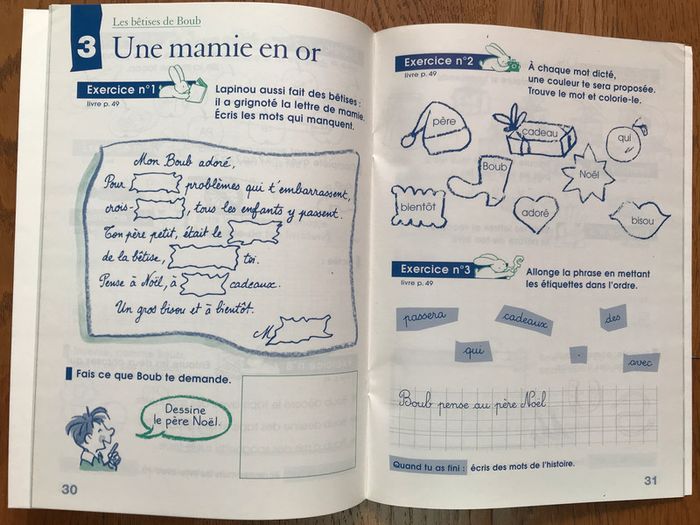 Les bêtises de Boub
3 Une mamie en or
Exercice n°1
livre p. 49
Lapinou aussi fait des bêtises :
il a grignoté la lettre de mamie.
Écris les mots qui manquent.
Mon Boub adoré,
Pour problèmes qui t'embarrassent,
crois- , tous les enfants y passent.
Ton père petit, était le
de la bêtise, toi.
Pense à Noël, à cadeaux.
Un gros bisou et à bientôt.
M
Fais ce que Boub te demande.
Dessine
le père Noël.
30
Exercice n°2
livre p. 49
À chaque mot dicté,
une couleur te sera proposée.
Trouve le mot et colorie-le.
père
cadeau
qui
Boub
Noël
bientôt
adoré
bisou
Exercice n°3
livre p. 49
Allonge la phrase en mettant
les étiquettes dans l'ordre.
passera
cadeaux
des
qui
.
avec
Boub pense au père Noel
Quand tu as fini : écris des mots de l'histoire.
31